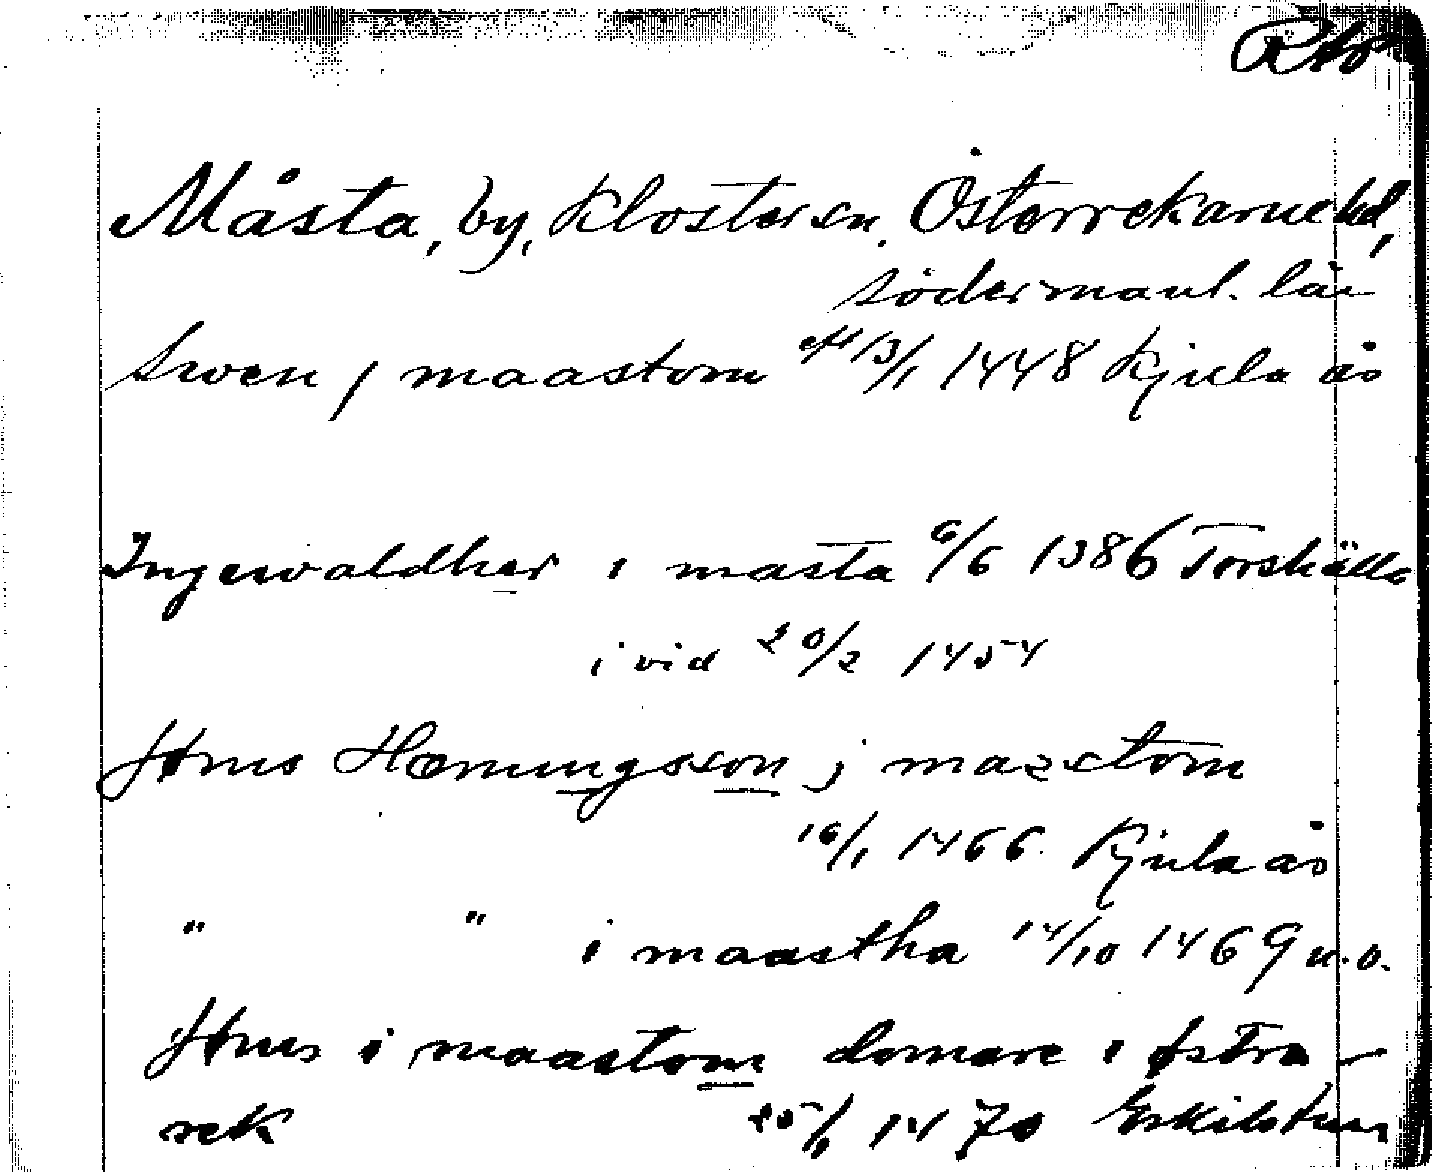 Måsta, by, Kloster sn. Österrekarne hd,
Södermanl. län
Swen j maastom eft 13/1 1448 Kjula ås
Ingewaldher i masta 6/6 1386 Torshälla
i vid 20/2 1454
Jøns Hemingsson j maestom
16/1 1466 Kjula ås
" " i maastha 14/10 1469 u.o.
Jøns i maastom domare i østra
rek 25/1 1470 Eskilstuna